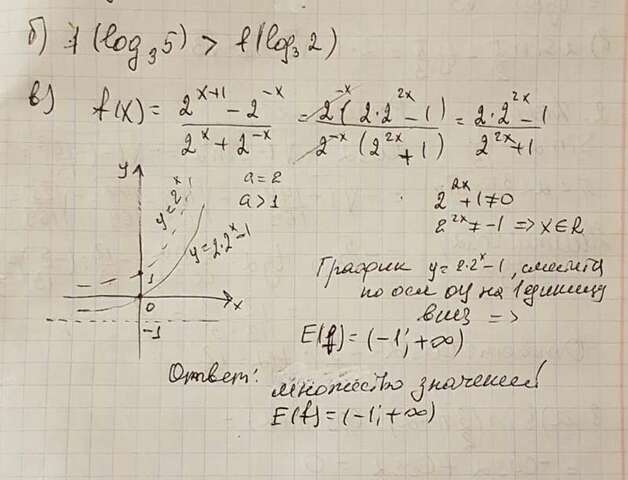 б) f(log₃5) > f(log₃2)
в) f(x) = (2^(x+1) - 2^(-x))/(2^x + 2^(-x)) = (2^(-x)(2·2^(2x) - 1))/(2^(-x)(2^(2x) + 1)) = (2·2^(2x) - 1)/(2^(2x) + 1)
y
a = 2
a > 1
y = 2^x
y = 2·2^x - 1
1
0
x
-1
2^(2x) + 1 ≠ 0
2^(2x) ≠ -1 => x ∈ R
График y = 2·2^x - 1, смещён
по оси оу на 1 единицу
вниз =>
E(f) = (-1; +∞)
Ответ: множество значений
E(f) = (-1; +∞)